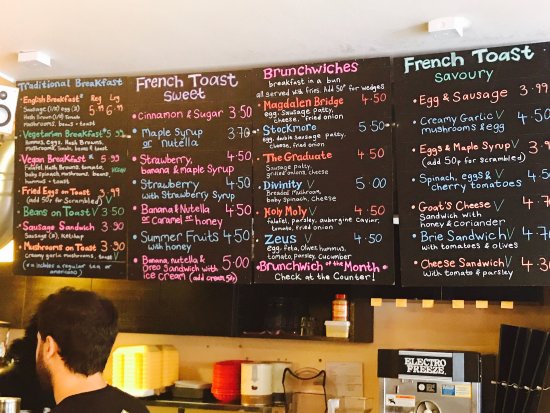 Traditional Breakfast
English Breakfast* Reg Lrg
Sausage (1/2) egg (2) 5.99 6.99
Hash Brown (1/2) Tomato
mushrooms, beans + toast
Vegetarian Breakfast* 5.99
Hummus, eggs, Hash Brown,
mushrooms, tomato, beans & toast
Vegan Breakfast* 5.99
Falafel, Hash Brown, Tomato,
baby Spinach, mushrooms, beans,
hummus + toast
Fried Eggs on Toast 3.99
(add 50p for Scrambled) V
Beans on Toast V 3.50
Sausage Sandwich 3.90
Mushrooms on Toast 3.99
creamy garlic mushrooms, toast V
(* = includes a regular tea or
americano)
French Toast
Sweet
Cinnamon & Sugar 3.50
Maple Syrup 3.70
or nutella
Strawberry, 4.50
banana & maple Syrup
Strawberry 4.50
with Strawberry Syrup
Banana & Nutella 4.50
or Caramel or honey
Summer Fruits 4.50
with honey
Banana, nutella & 5.00
Oreo Sandwich with
ice cream (add cream 50p)
Brunchwiches
breakfast in a bun
all served with fries. Add 50p for wedges
Magdalen Bridge 4.50
egg, Sausage Patty,
cheese, fried onion
Stockmore 5.50
egg, double Sausage patty,
cheese, fried onion
The Graduate 4.50
Sausage patty
grilled onions, cheese
Divinity V 5.00
Breaded Mushroom,
baby Spinach, cheese
Holy Moly V 4.50
falafel, parsley, aubergine Caviar,
tomato, fried onion
Zeus V 4.50
egg, feta, Olives, hummus,
tomato, parsley, cucumber
Brunchwich of the Month
Check at the Counter!
French Toast
Savoury
Egg & Sausage 3.99
Creamy Garlic V
mushrooms & egg
Eggs & Maple Syrup V
(add 50p for Scrambled)
Spinach, eggs & V
cherry tomatoes
Goat's Cheese V
Sandwich with
honey & Coriander
Brie Sandwich V
with tomatoes & olives
Cheese Sandwich V
with tomato & parsley
ELECTRO
FREEZE